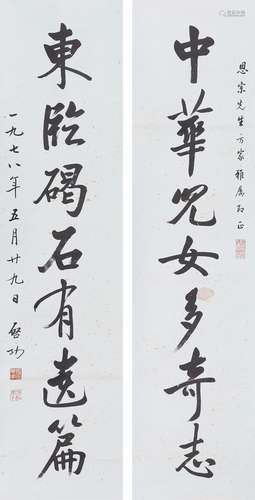 恩宗先生方家雅屬即正
中華兒女多奇志
東臨碣石有遺篇
一九七八年五月廿九日 啓功